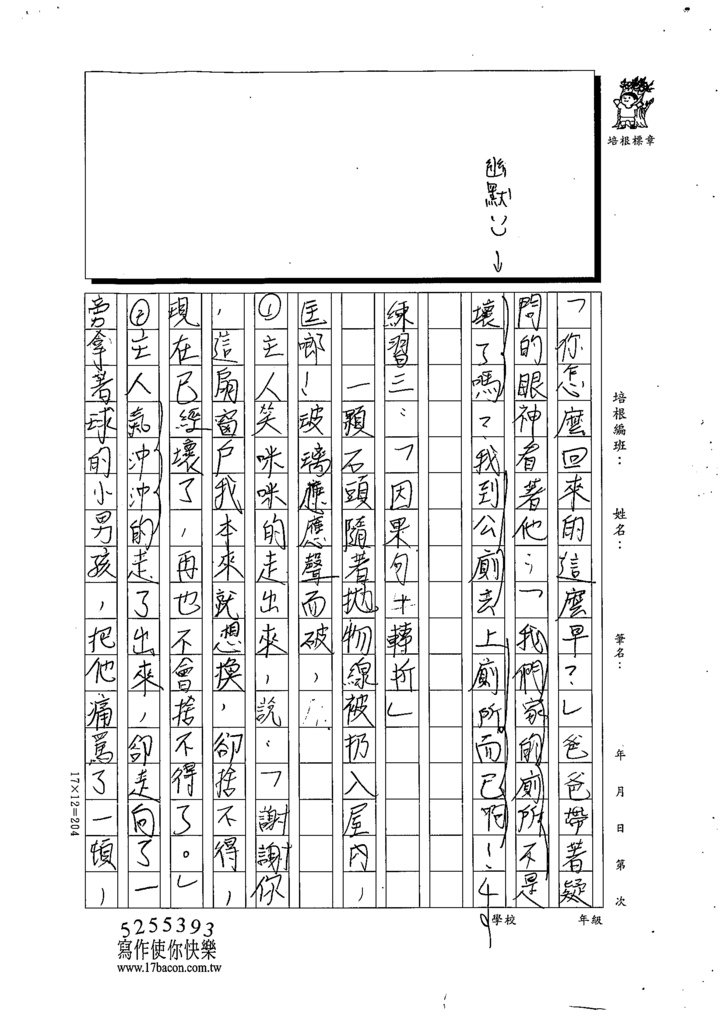 培根標章
幽默
培根編班： 姓名： 筆名： 年 月 日 第 次
「你怎麼回來的這麼早？」爸爸帶著疑
問的眼神看著他：「我們家的廁所不是
壞了嗎？我到公廁去上廁所而已啊！」
練習三：「因果句＋轉折」
一顆石頭隨著拋物線被扔入屋內，
匡啷！玻璃應應聲而破，
①主人笑咪咪的走出來，說：「謝謝你
，這扇窗戶我本來就想換，卻捨不得，
現在已經壞了，再也不會捨不得了。」
②主人氣沖沖的走了出來，卻走向了一
旁拿著球的小男孩，把他痛罵了一頓，
17×12=204
學校 年級
5255393
寫作使你快樂
www.17bacon.com.tw